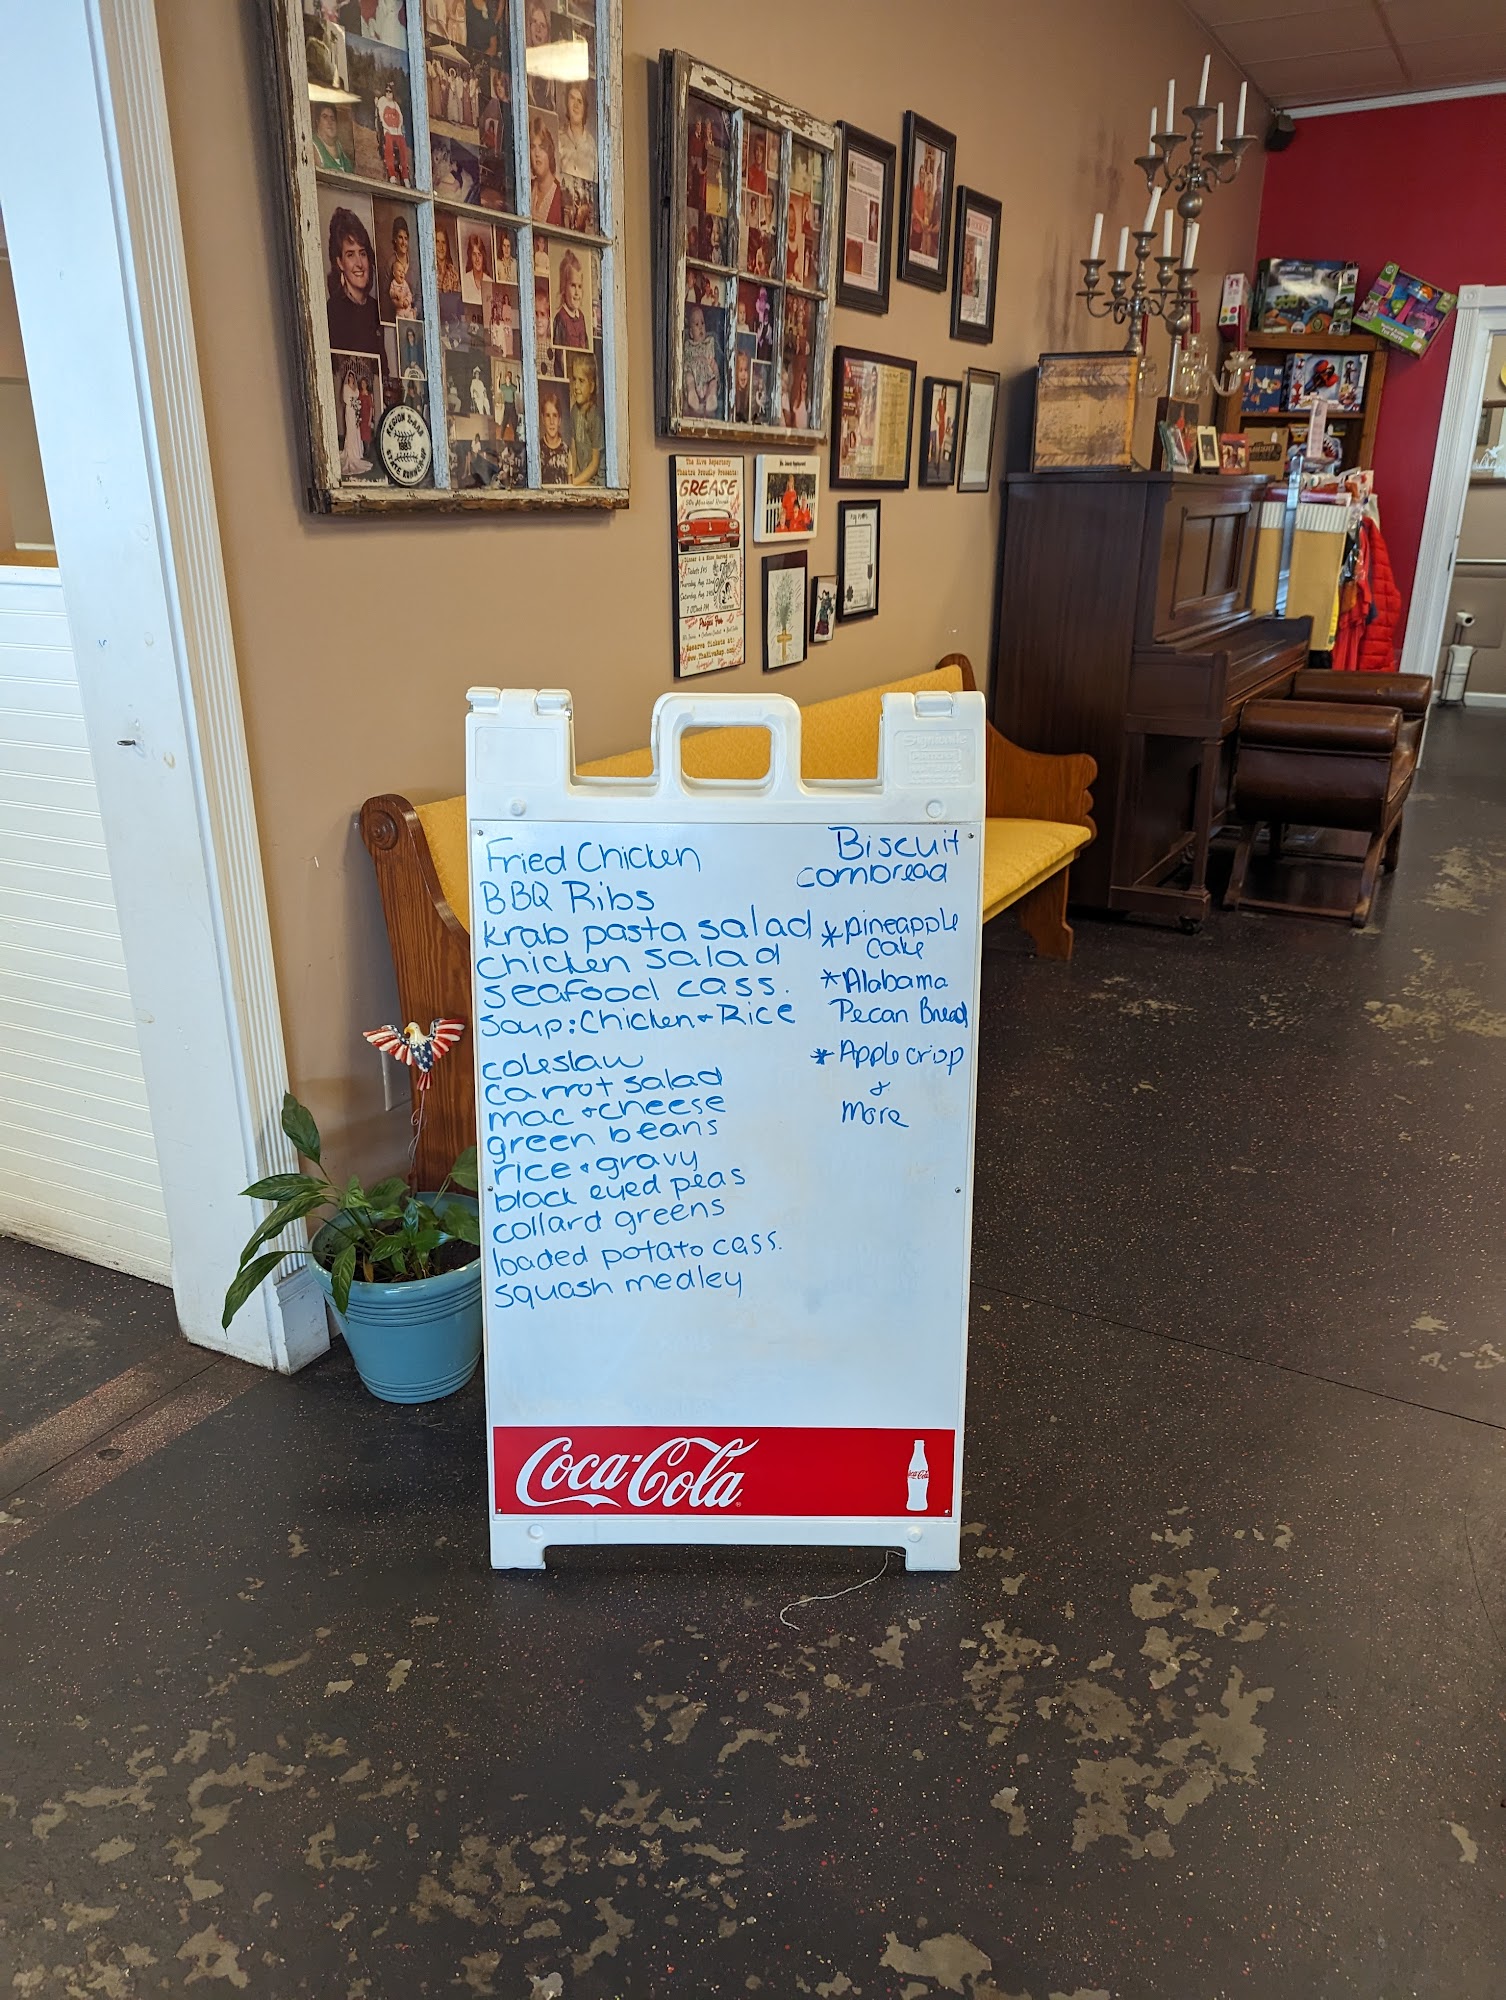 GREASE
Fried Chicken
BBQ Ribs
krab pasta salad
chicken salad
seafood cass.
soup: Chicken + Rice
coleslaw
carrot salad
mac + cheese
green beans
rice + gravy
black eyed peas
collard greens
loaded potato cass.
squash medley
Biscuit
cornbread
* pineapple
cake
* Alabama
Pecan Bread
* Apple crisp
+
More
Coca-Cola